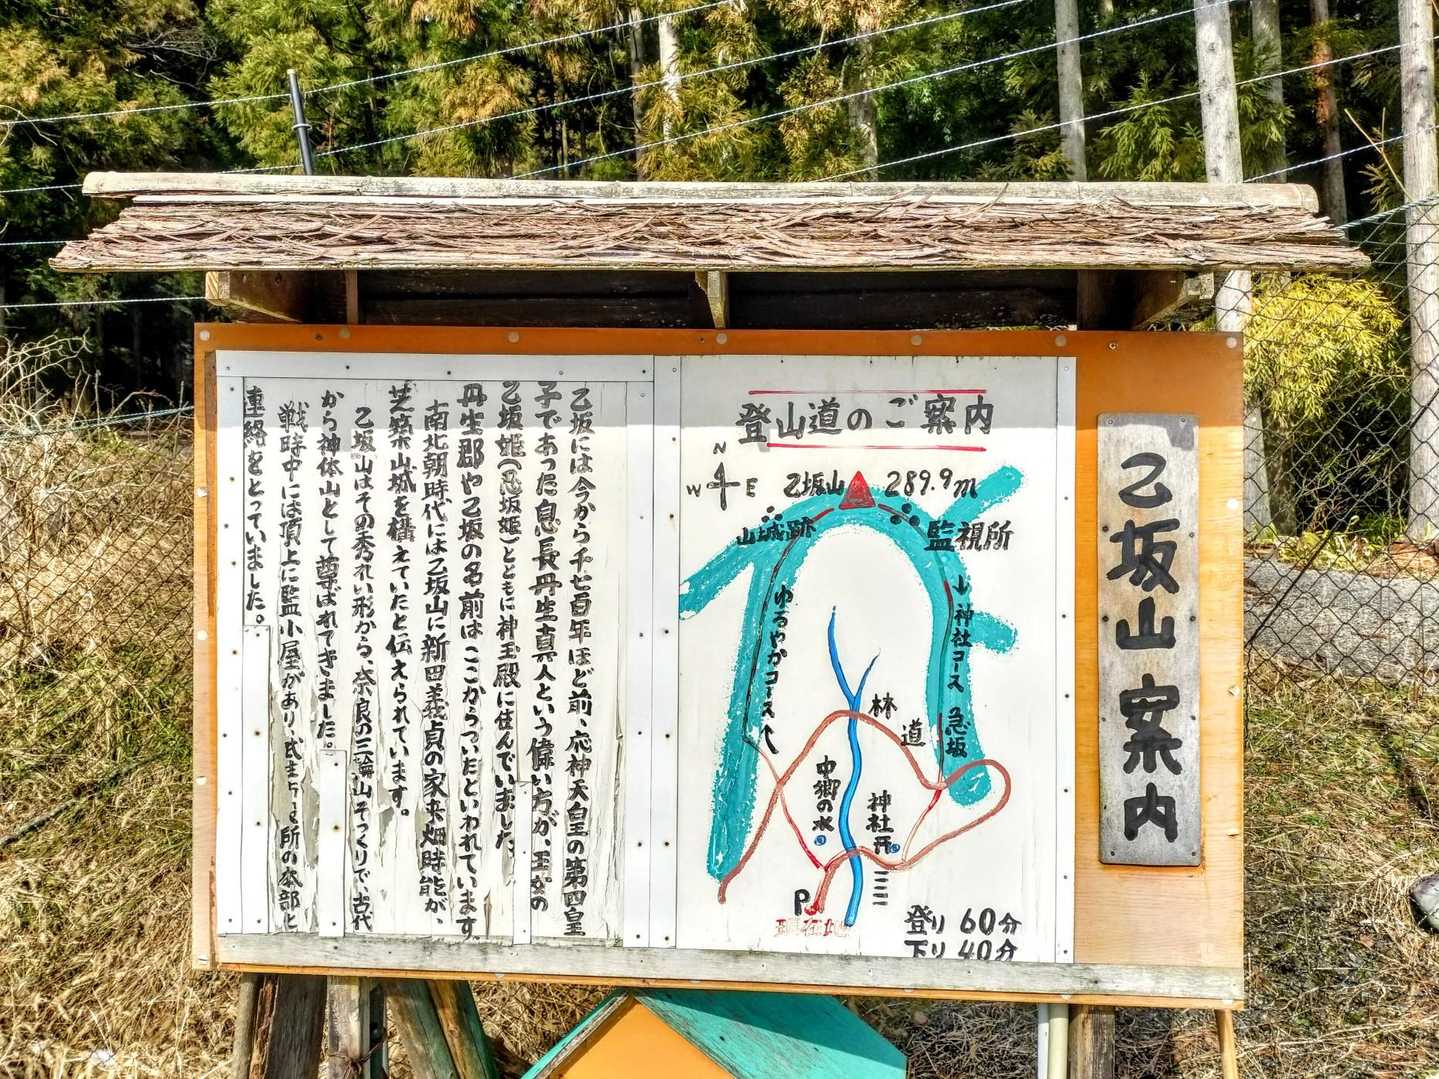 乙坂山 案内
登山道のご案内
N
W E
乙坂山 289.9m
山城跡
監視所
ゆるやかコース
神社コース
急坂
林道
中郷の水
神社
P
現在地
登り 60分
下り 40分
乙坂には今から千七百年ほど前、応神天皇の第四皇
子であった息長丹生真人という偉い方が、王女の
乙坂姫(忍坂姫)とともに神玉殿に住んでいました。
丹生郡や乙坂の名前は ここからついたといわれています。
南北朝時代には乙坂山に新田義貞の家来畑時能が、
芝築山城を構えていたと伝えられています。
乙坂山はその秀れい形から、奈良の三輪山そっくりで、古代
から神体山として尊ばれてきました。
戦時中には頂上に監小屋があり、武生 所の本部と
連絡をとっていました。